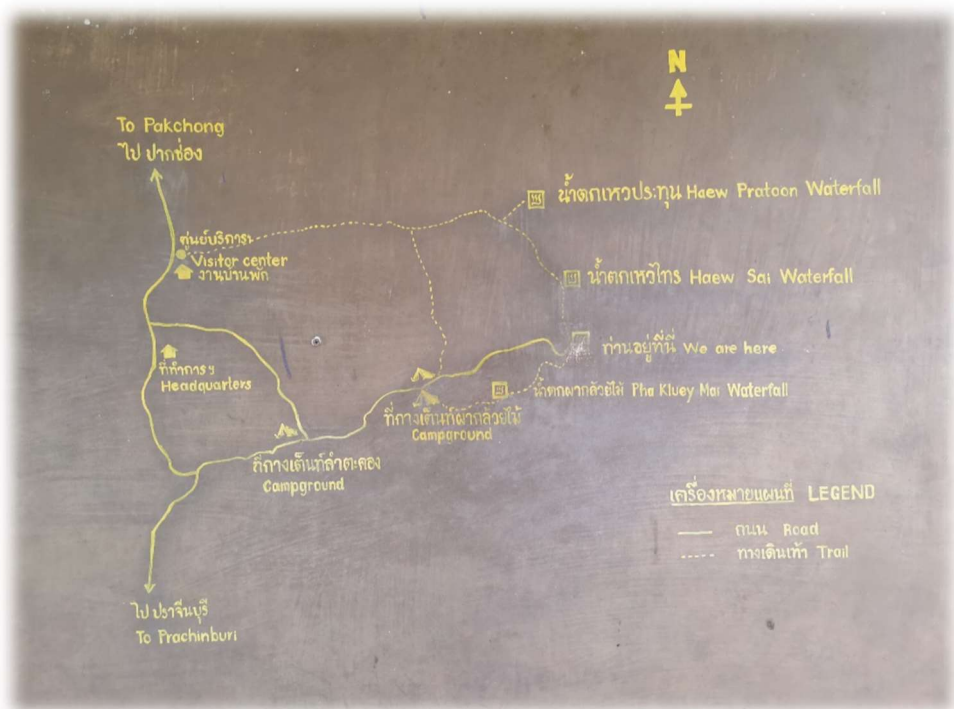 N
To Pakchong
ไป ปากช่อง
น้ำตกเหวประทุน Haew Pratoon Waterfall
ศูนย์บริการฯ
Visitor center
งานบ้านพัก
น้ำตกเหวไทร Haew Sai Waterfall
ท่านอยู่ที่นี่ We are here
ที่ทำการฯ
Headquarters
น้ำตกผากล้วยไม้ Pha Kluey Mai Waterfall
ที่กางเต็นท์ผากล้วยไม้
Campground
ที่กางเต็นท์ลำตะคอง
Campground
เครื่องหมายแผนที่ LEGEND
ถนน Road
ทางเดินเท้า Trail
ไป ปราจีนบุรี
To Prachinburi